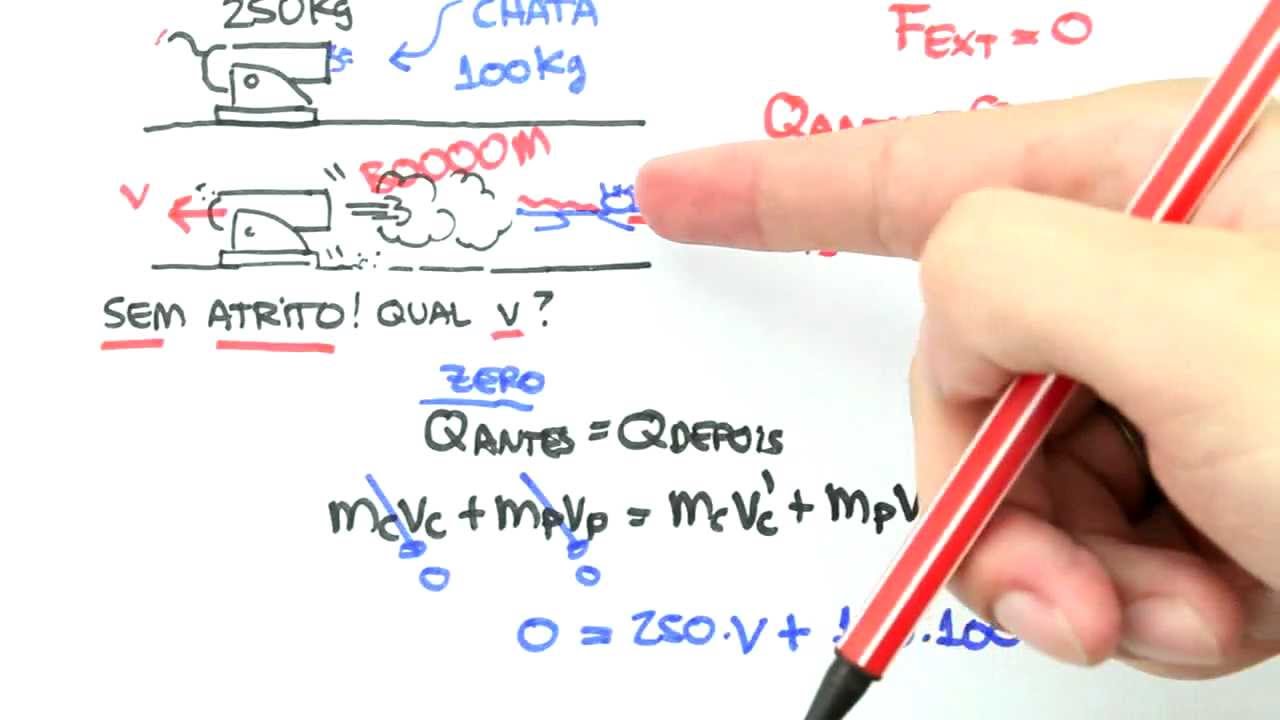 250Kg
CHATA
100Kg
FEXT = 0
BOOOOM
V
SEM ATRITO! QUAL V?
ZERO
QANTES = QDEPOIS
mcVc + mpVp = mcVc' + mpV
0 0
0 = 250.V +